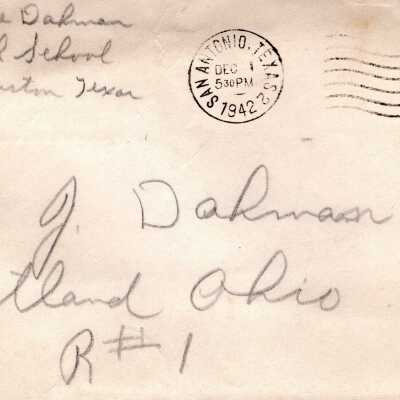 e Dahman
l School
ston Texas
SAN ANTONIO, TEXAS 2
DEC 1
5 30 PM
1942
J. Dahman
tland Ohio
R#1